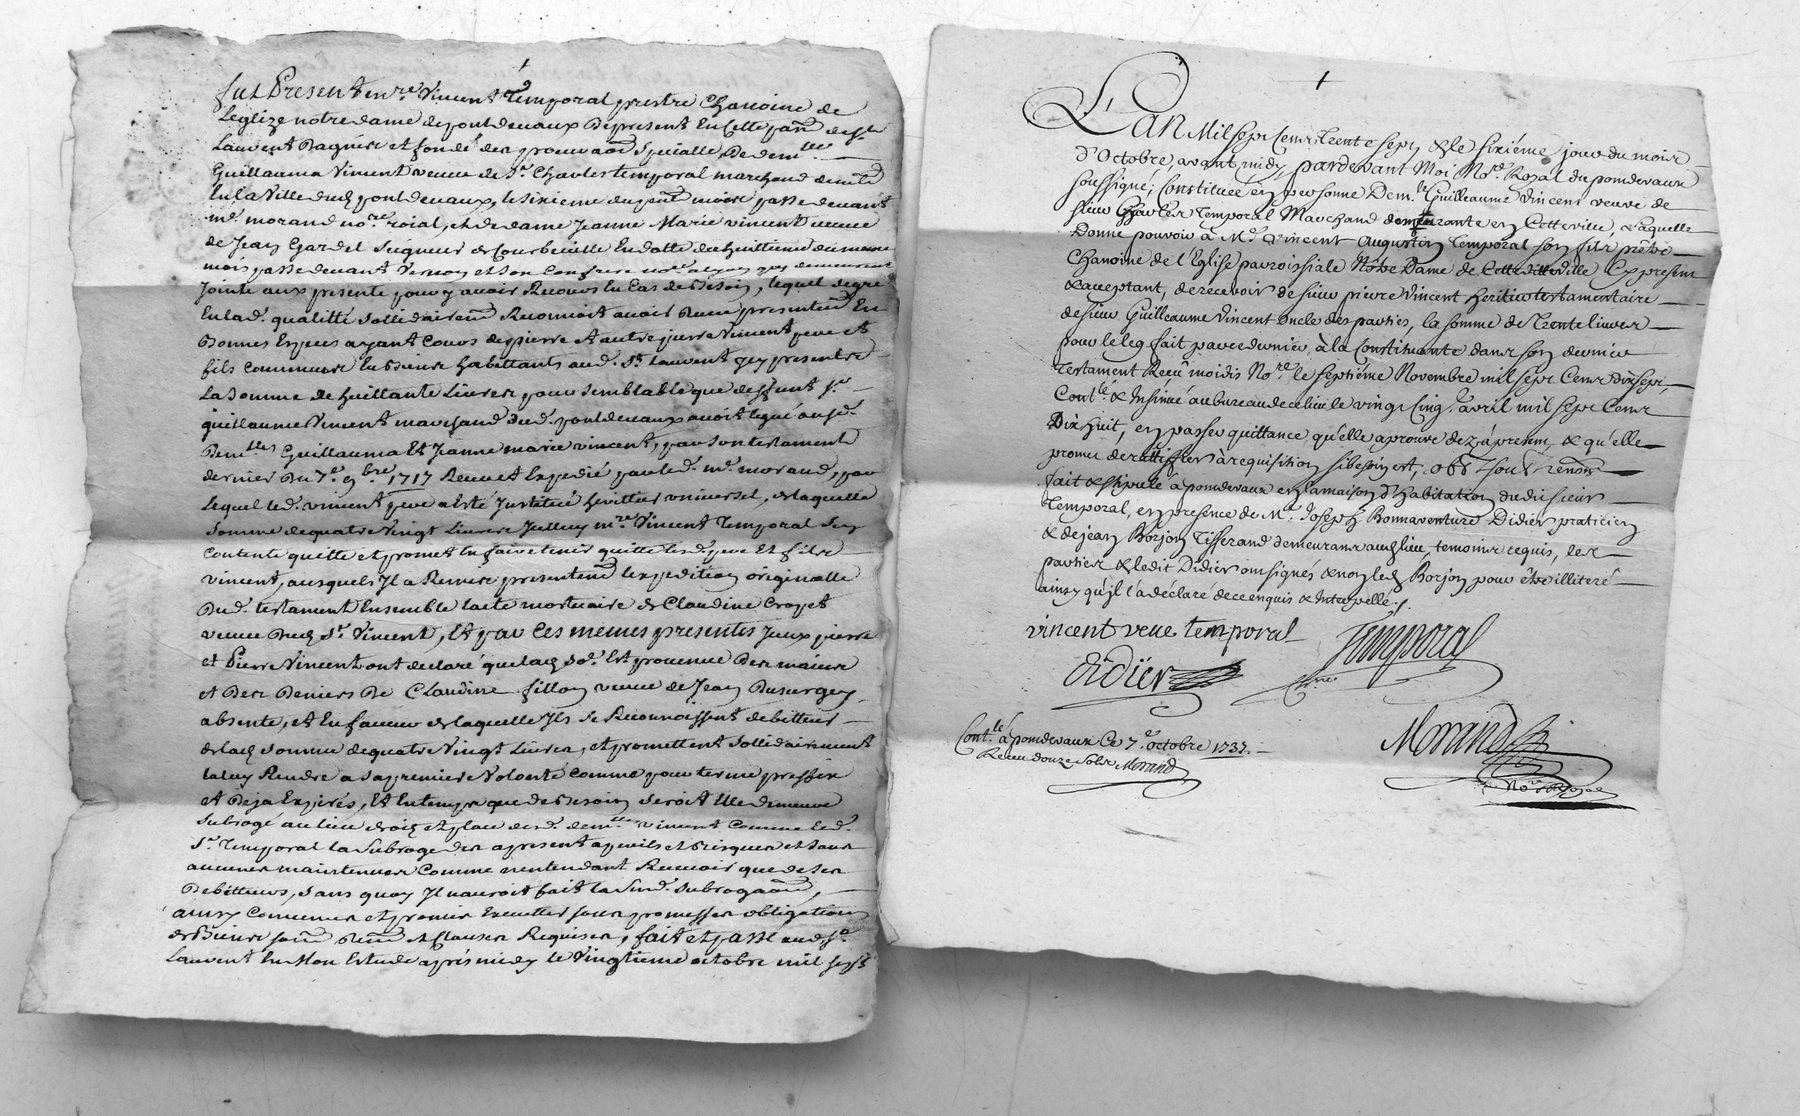 fut Present m.re Vincent Temporal prestre Chanoine de
Leglize notre dame de pontdevaux De present En Cette par. de St
Laurent et fondé de procuraon Specialle De dem.lle
Guillauma Vincent veuve de Sr Charles temporal marchand demt
En la Ville dud pontdevaux, le sixieme du pnt mois passe devant
me morand no.re roial, et de dame Jeanne Marie vincent veuve
de Jean Gardel Seigneur de Courbeville En datte du huittieme du mesme
mois passe devant et son Confrere no.re qui demeurent
Jointe aux presente pour y avoir Recours En Cas de Besoin, lequel de gre
En lad. qualitté sollidairemt Reconnoit avoir Receu presentemt En
Bonnes Especes ayant Cours de pierre et autre pierre Vincent pere et
fils Communs En Biens habittants aud. St laurent Icy presents
La Somme de huittante Livres pour semblable que deffunt Sr
guillaume Vincent marchand dud. pontdevaux avoit legué auxd.
Dem.lles Guillauma Et Jeanne marie vincent, par son testament
dernier du 7e 9bre 1717 Receu et Expedié par led. me morand, par
Lequel led. vincent pere a Esté Institué herittier universel, de laquelle
Somme de quatre Vingt Livres Jcelluy mre Vincent Temporal Se
Contente quitte et promet En faire tenir quitte lesd. pere Et fils
vincent, ausquels Jl a Remis presentemt lexpedition originalle
Dud. testament Ensemble lacte mortuaire de Claudine Croyet
veuve Dud Sr Vincent, Et par Ces memes presentes Jceux pierre
et Pierre Vincent ont declaré que lad so.e Est provenue Des mains
et Des Deniers De Claudine fillon veuve de Jean
absente, et En faveur de laquelle Jls se Reconnoissent debitteurs
de lad somme de quatre Vingt Livres, et promettent sollidairement
la luy Rendre a sa premiere Volonté Comme pour terme
et Deja Expirés, Et En temps que de Besoin seroit Elle demeure
Subrogé au lieu droit et place desd. dem.lles vincent Comme led.
Sr Temporal la Subroge des apresent a perils et Risques et sans
aucunes maintenues Comme nentendant Recevoir que de ses
Debitteurs, sans quoy Jl nauroit fait la Susd. Subrogaon,
ainsy Convenus et promis Executter sous promesses obligations
de Biens et Clauses Requises, fait et passé aud. St
Laurent En Mon Estude après midy le Vingtieme octobre mil sept
L'AN Mil sept Cent Trente sept & le sixiéme jour du mois
d'Octobre, avant midy, pardevant Moi No.re Royal du pondevaux
soussigné, Constituée en personne Dem.lle Guillauma Vincent veuve de
sieur Charles Temporal Marchand demeurante en Cette ville, Laquelle
Donne pouvoir à Mre Vincent Augustin Temporal son fils prêtre
Chanoine de l'Eglise parroissiale Nôtre Dame de Cette ville Cy present
& acceptant, de recevoir de sieur pierre Vincent Heritier testamentaire
de sieur Guilleaume Vincent oncle des parties, la somme de Trente livres
pour le leg fait par ce dernier, à la Constituante dans son dernier
Testament Receu moidis No.re le septiéme Novembre mil sept Cent Dix sept,
Cont.lé & Insinué au bureau de ce lieu le vingt Cinq avril mil sept Cent
Dix huit, en passer quittance, qu'elle aprouve dez à present, & qu'elle
promet de rattiffier à requisition si besoin est,
fait & stipulé à pondevaux en la maison d'habitation dudit sieur
Temporal, en presence de Mre Joseph Bonnaventure Didier praticien
& de jean Borjon Tisserand demeurans audt lieu, temoins requis, les
parties & ledit Didier ont signés & non led Borjon pour être illiteré
ainsy qu'il l'a déclaré de ce enquis & Interpellé ./.
vincent veue temporal
Temporal
didier
Cont.lé à pondevaux Ce 7.e octobre 1737.
Receu douze sols Morand
Morand
No.re Royal